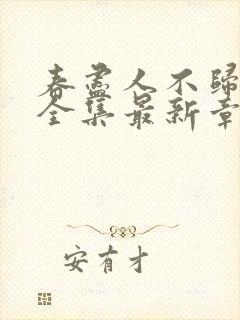 春盡人不歸
全集最新章
安有才